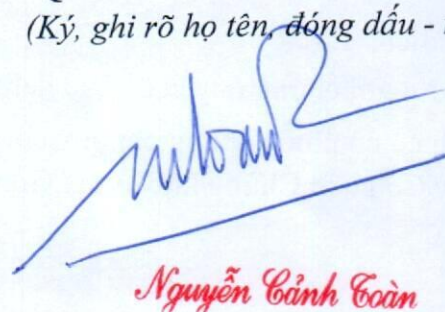 (Ký, ghi rõ họ tên, đóng dấu -
Nguyễn Cảnh Toàn